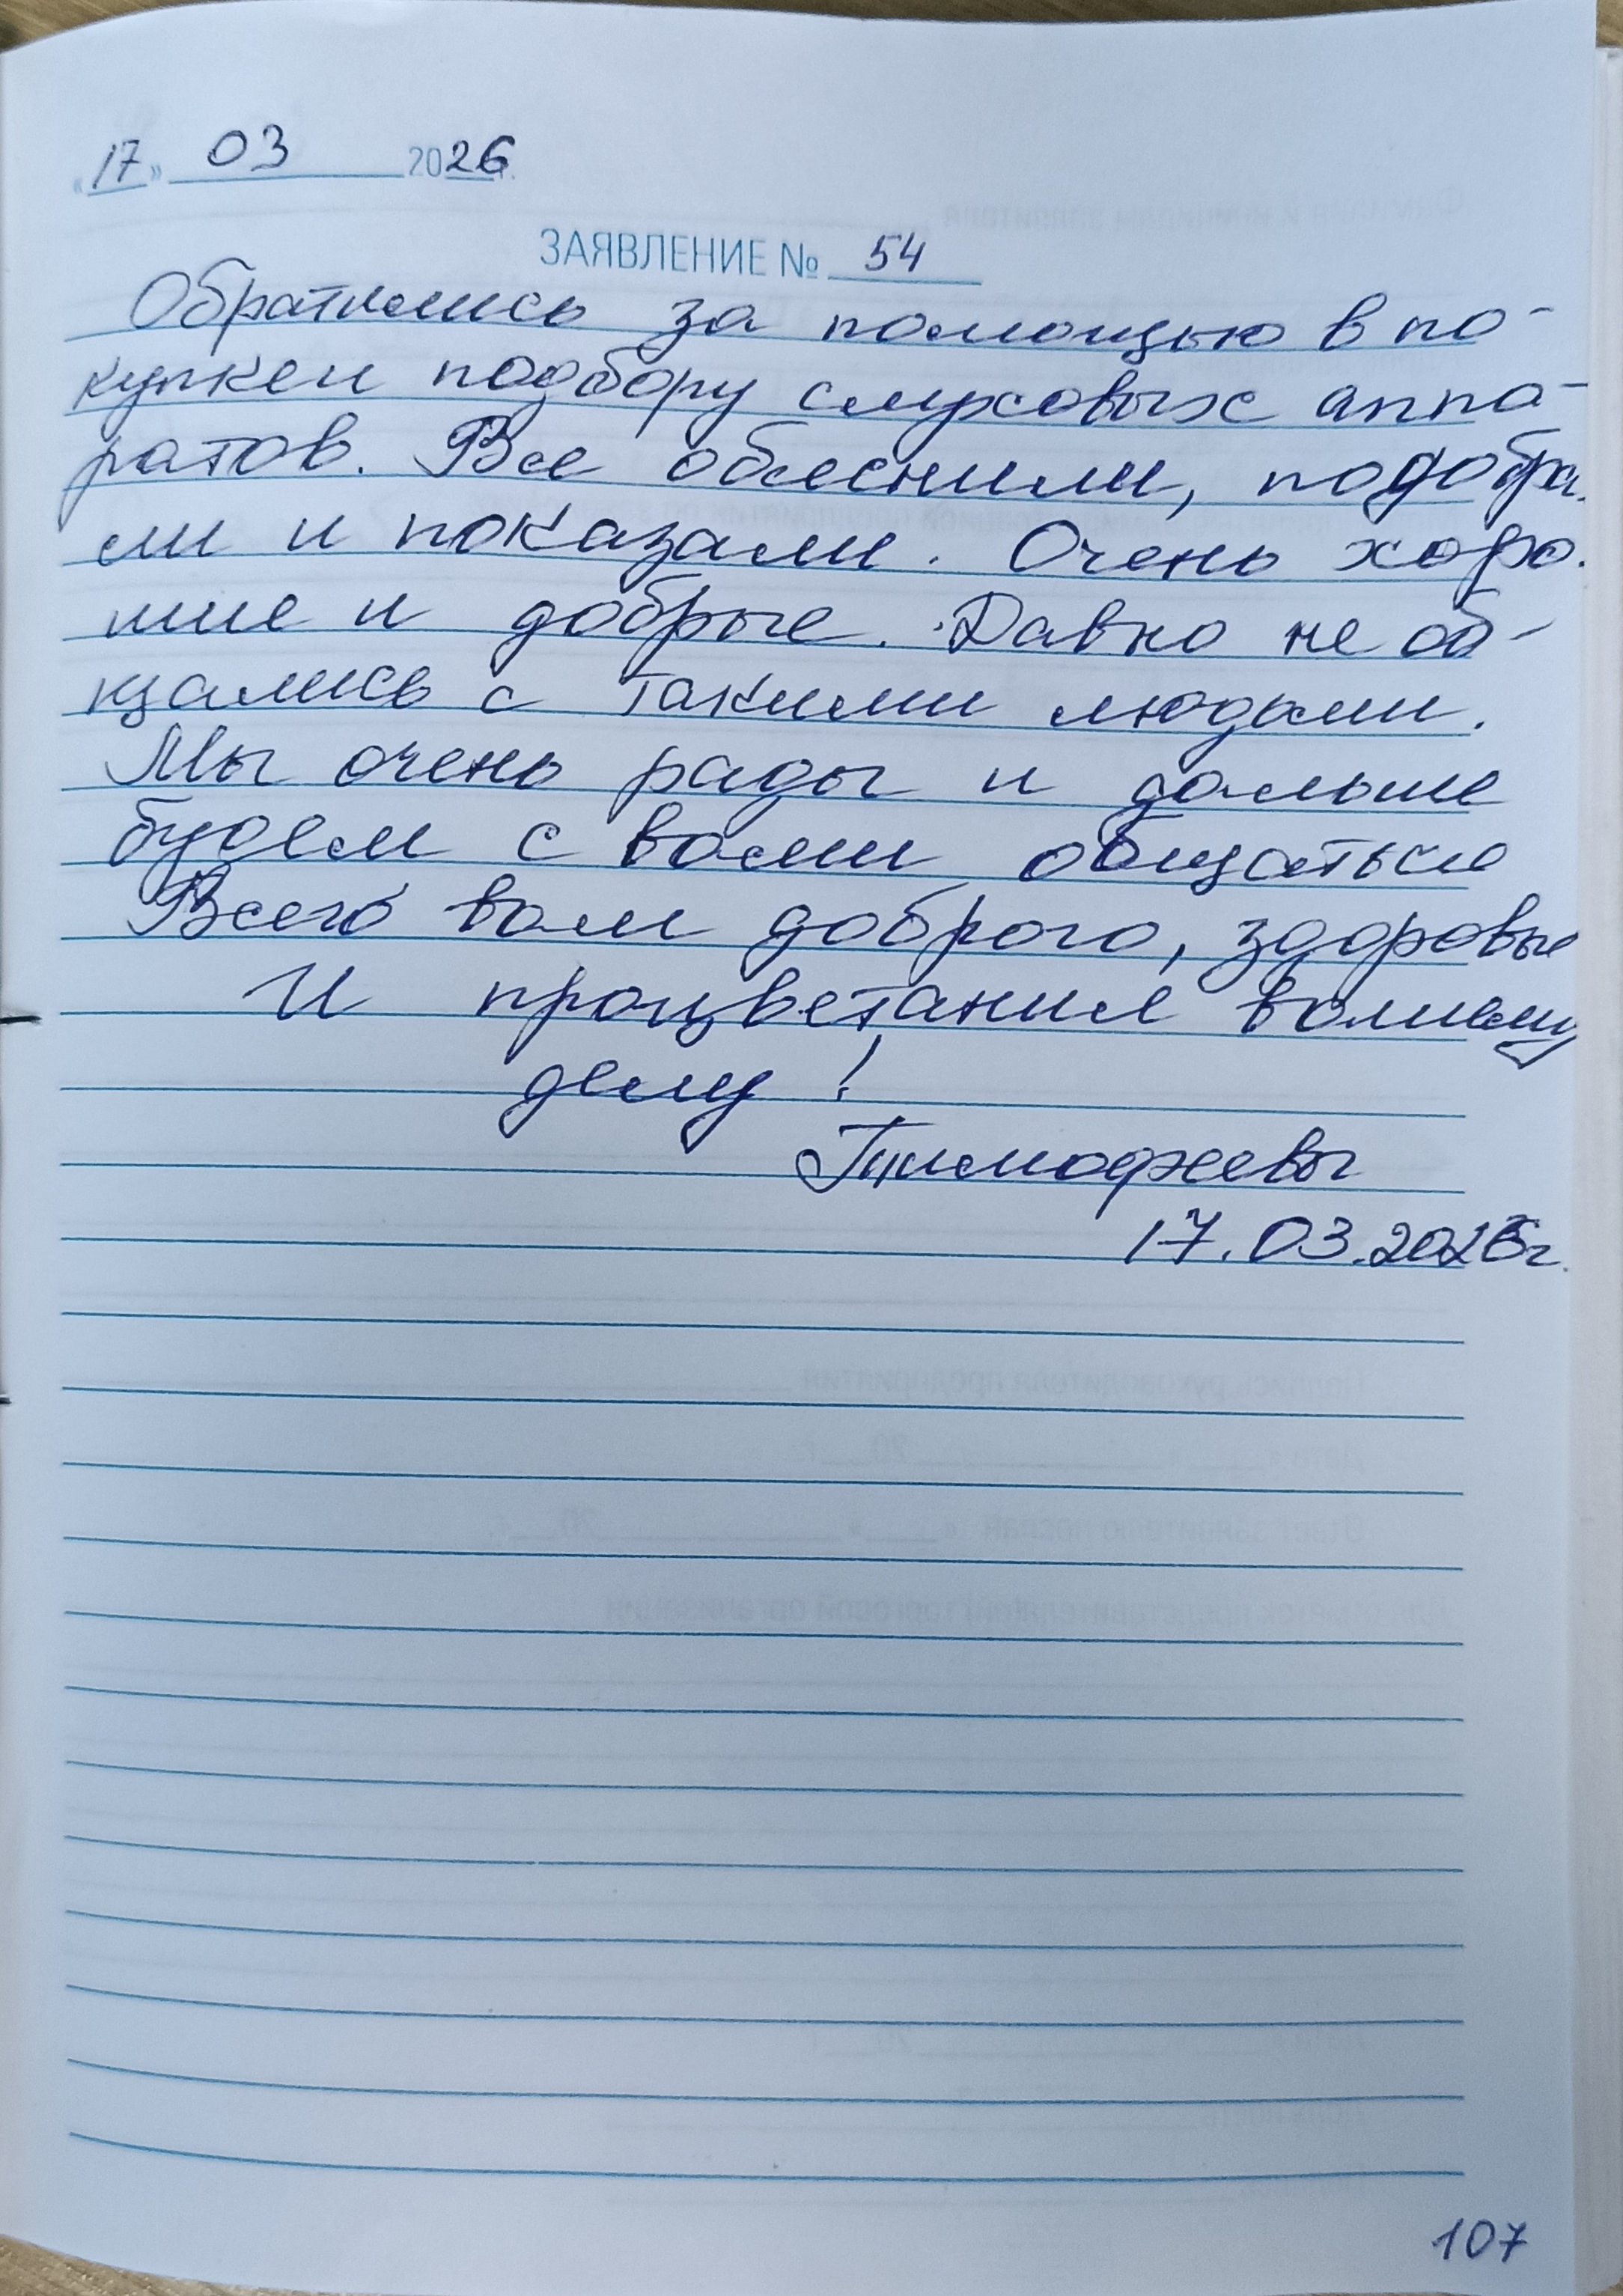 «17» 03 2026г.
ЗАЯВЛЕНИЕ № 54
Обратились за помощью в по-
купкеи подбору слуховых аппа-
ратов. Все обяснили, подобра-
ли и показали. Очень хоро-
шие и добрые. Давно не об-
щались с такими людьми.
Мы очень рады и дальше
будем с вами общаться
Всего вам доброго, здоровье
И процветания вашему
делу!
Тимофеевы
17.03.2026г.
107